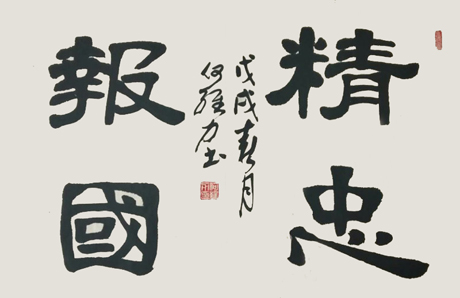 精忠
報國
戊戌春月
何強力書